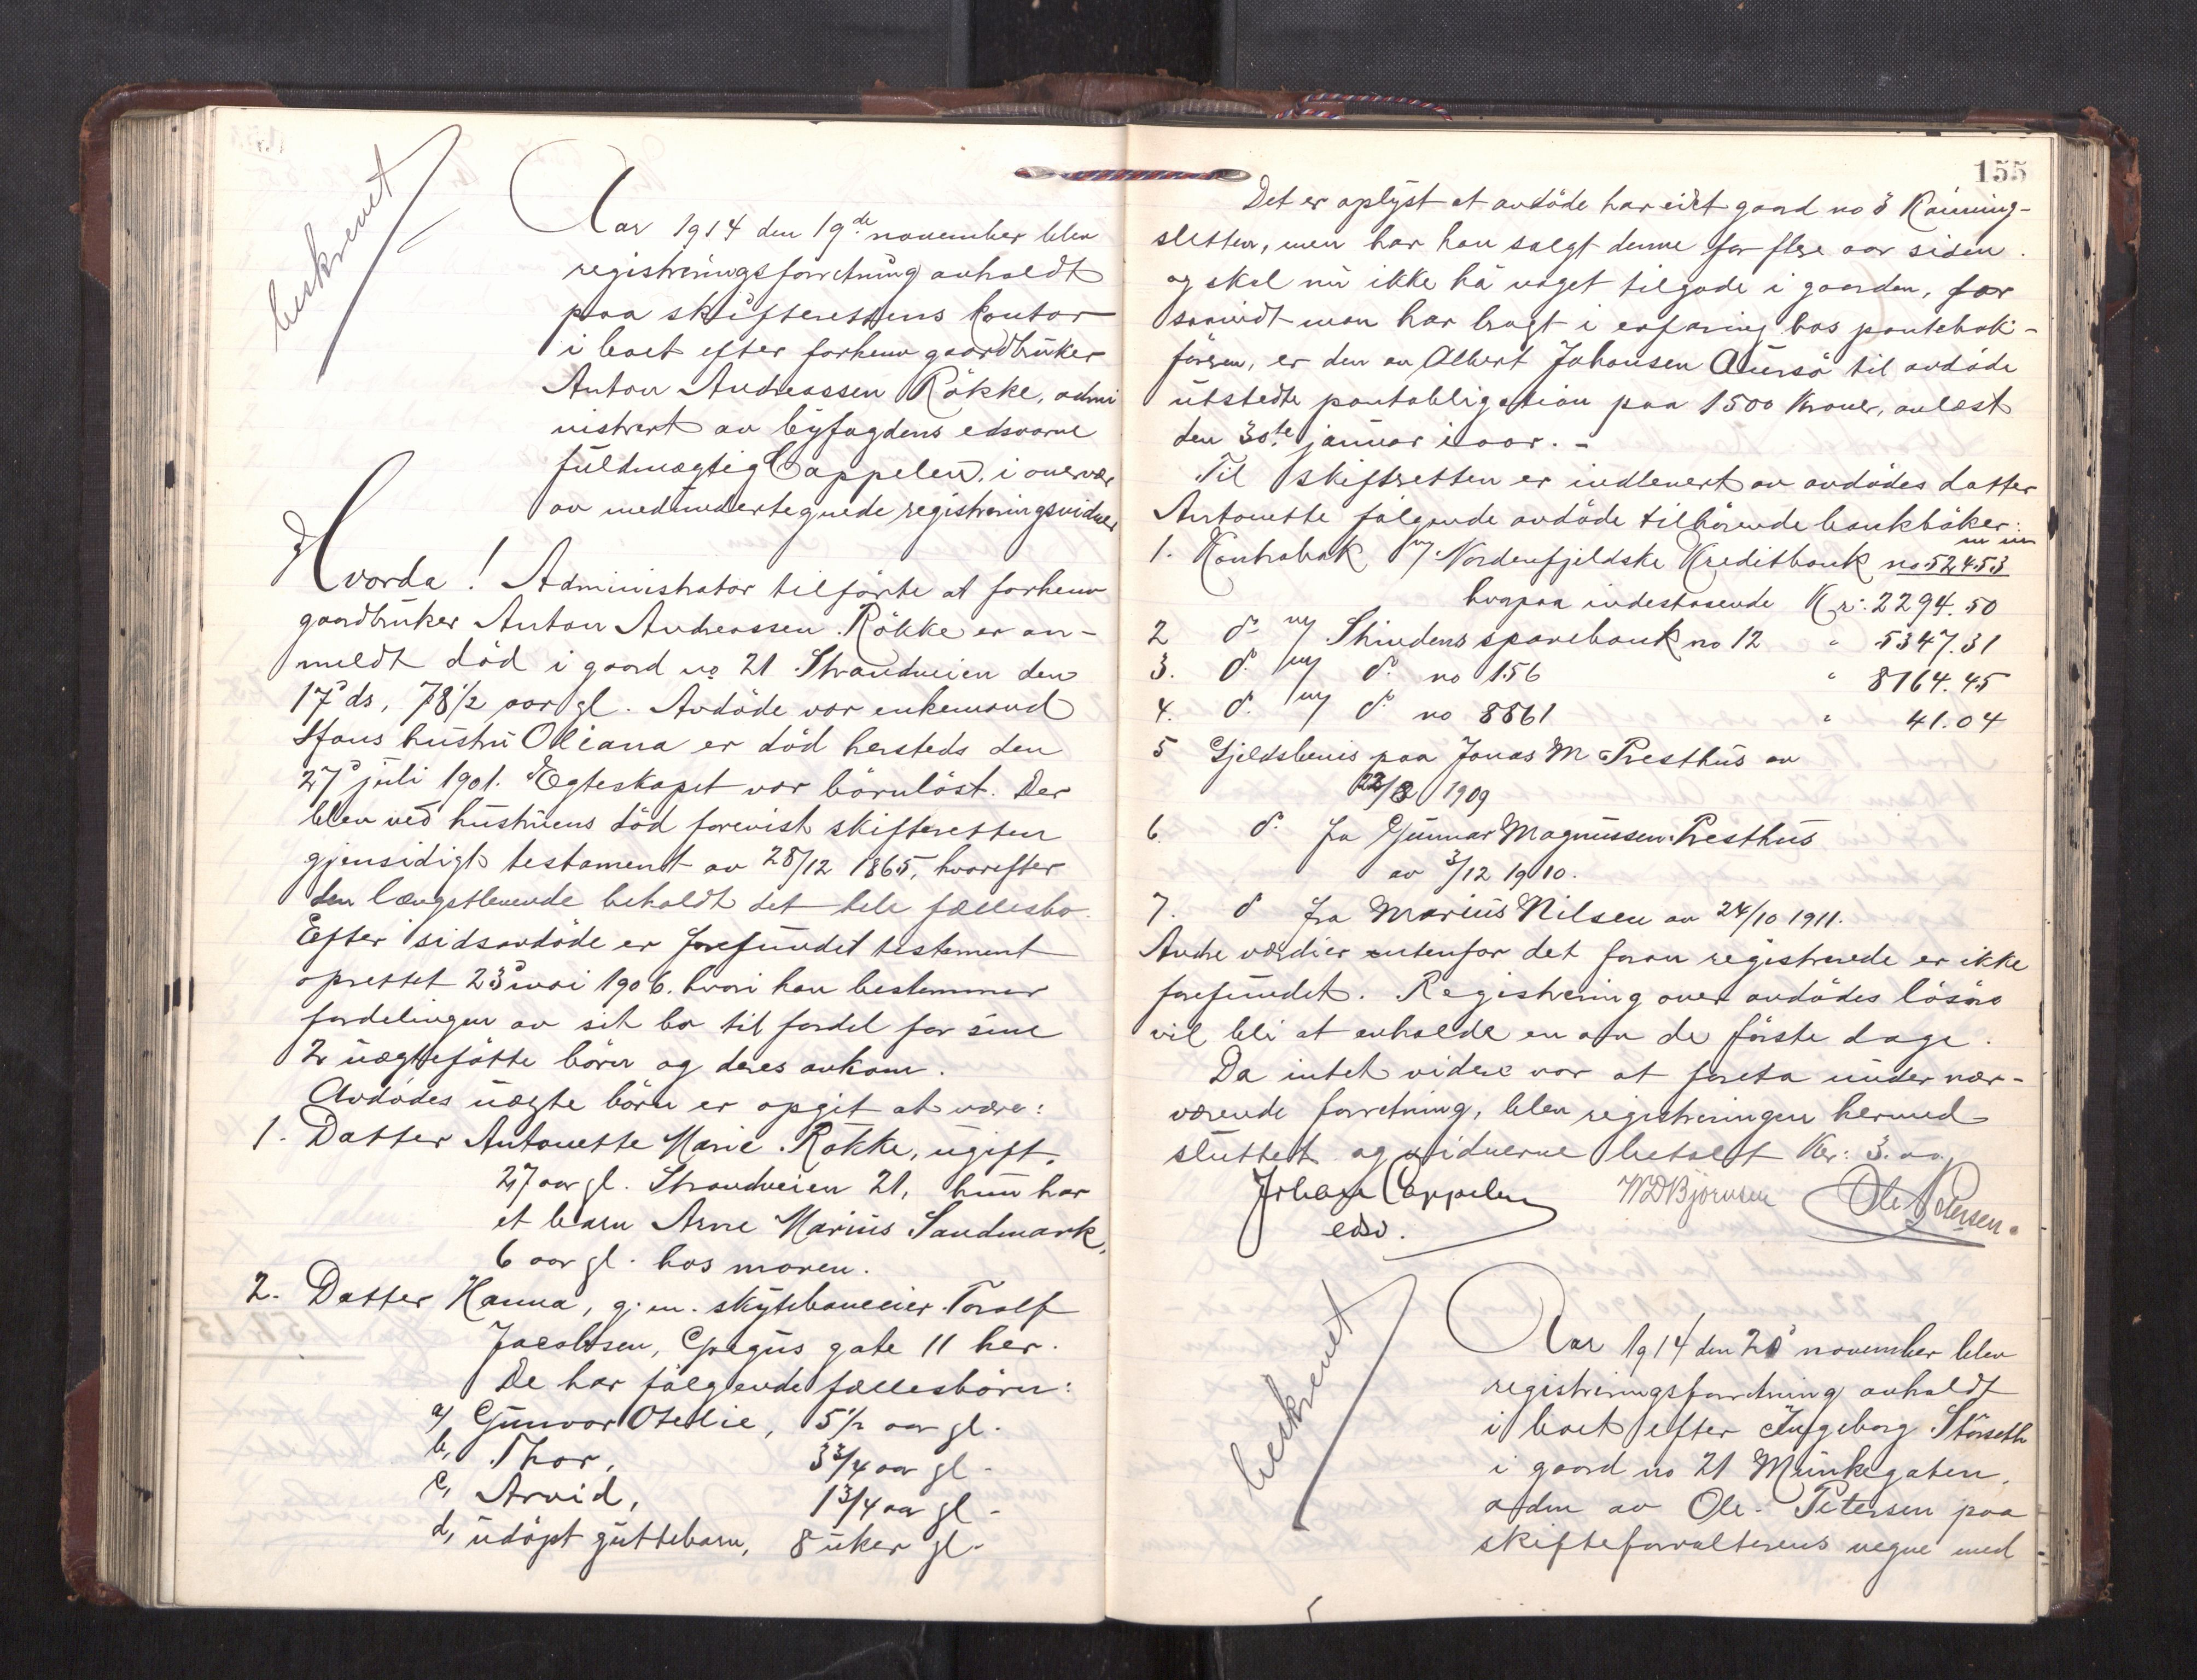 beskrevet
Aar 1914 den 19de november blev
registreringsforretning avholdt
paa skifterettens kontor
i boet efter forhenv gaardbruker
Anton Andreassen Rökke, admi
nistrert av byfogdens edsvorne
fuldmægtig Cappelen, i overvær
av medundertegnede registreringsvidner
Hvorda! Administrator tilførte at forhenv
gaardbruker Anton Andreassen Rökke er an-
meldt död i gaard no 21 Strandveien den
17' ds, 78 1/2 aar gl. Avdöde var enkemand
Hans hustru Oliana er död hersteds den
27' juli 1901. Egteskapet var börnlöst. Der
blev ved hustruens död forevist skifteretten
gjensidigt testament av 28/12 1865, hvorefter
den længstlevende beholdt det hele fællesbo.
Efter sidsavdöde er forefundet testament
oprettet 23' mai 1906. hvori han bestemmer
fordelingen av sit bo til fordel for sine
2 uægtefötte börn og deres avkom.
Avdödes uægte börn er opgit at være:
1. Datter Antonette Marie Rökke, ugift,
27 aar gl. Strandveien 21, hun har
et barn Arne Marius Sandmark,
6 aar gl. hos moren.
2. Datter Hanna, g.m. skytebaneeier Toralf
Jacobsen, Gregus gate 11 her.
De har fölgende fællesbörn:
a, Gunvor Otelie, 5 1/2 aar gl.
b, Thor, 3 3/4 aar gl -
c, Arvid, 1 3/4 aar gl -
d, udöpt guttebarn, 8 uker gl -
155
Det er oplyst at avdöde har eiet gaard no 3 Rönning-
sletten, men har han solgt denne for flere aar siden.
og skal nu ikke ha noget tilgode i gaarden, for
saavidt man har bragt i erfaring hos pantebok-
föreren, er den av Albert Johansen Aursö til avdöde
utstedte pantobligation paa 1500 Kroner, avlæst
den 30te januar iaar. -
Til skifteretten er indlevert av avdödes datter
Antonette fölgende avdöde tilhörende bankböker:
1. Kontrabok m/ Nordenfjeldske Kreditbank no 52453
hvorpaa indestaaende Kr: 2294.50
2 do m/ Strindens sparebank no 12 " 5347.31
3. do m/ do no 156 " 8164.45
4. do m/ do no 8561 " 41.04
5 Gjeldsbevis paa Jonas M Presthus av
22/8 1909
6. do fra Gunnar Magnussen Presthus
av 3/12 1910.
7. do fra Marius Nilsen av 24/10 1911.
Andre værdier utenfor det foran registrerede er ikke
forefundet. Registrering over avdödes lösöre
vil bli at avholde en av de förste dage.
Da intet videre var at foreta under nær-
værende forretning, blev registreringen hermed
sluttet og vidnerne betalt Kr: 3.00
Johan Cappelen WD Bjørnsen Ole Petersen.
edsv.
beskrevet
Aar 1914 den 20' november blev
registreringsforretning avholdt
i boet efter Ingeborg Störseth
i gaard no 21 Munkegaten,
adm av Ole Petersen paa
skifteforvalterens vegne med